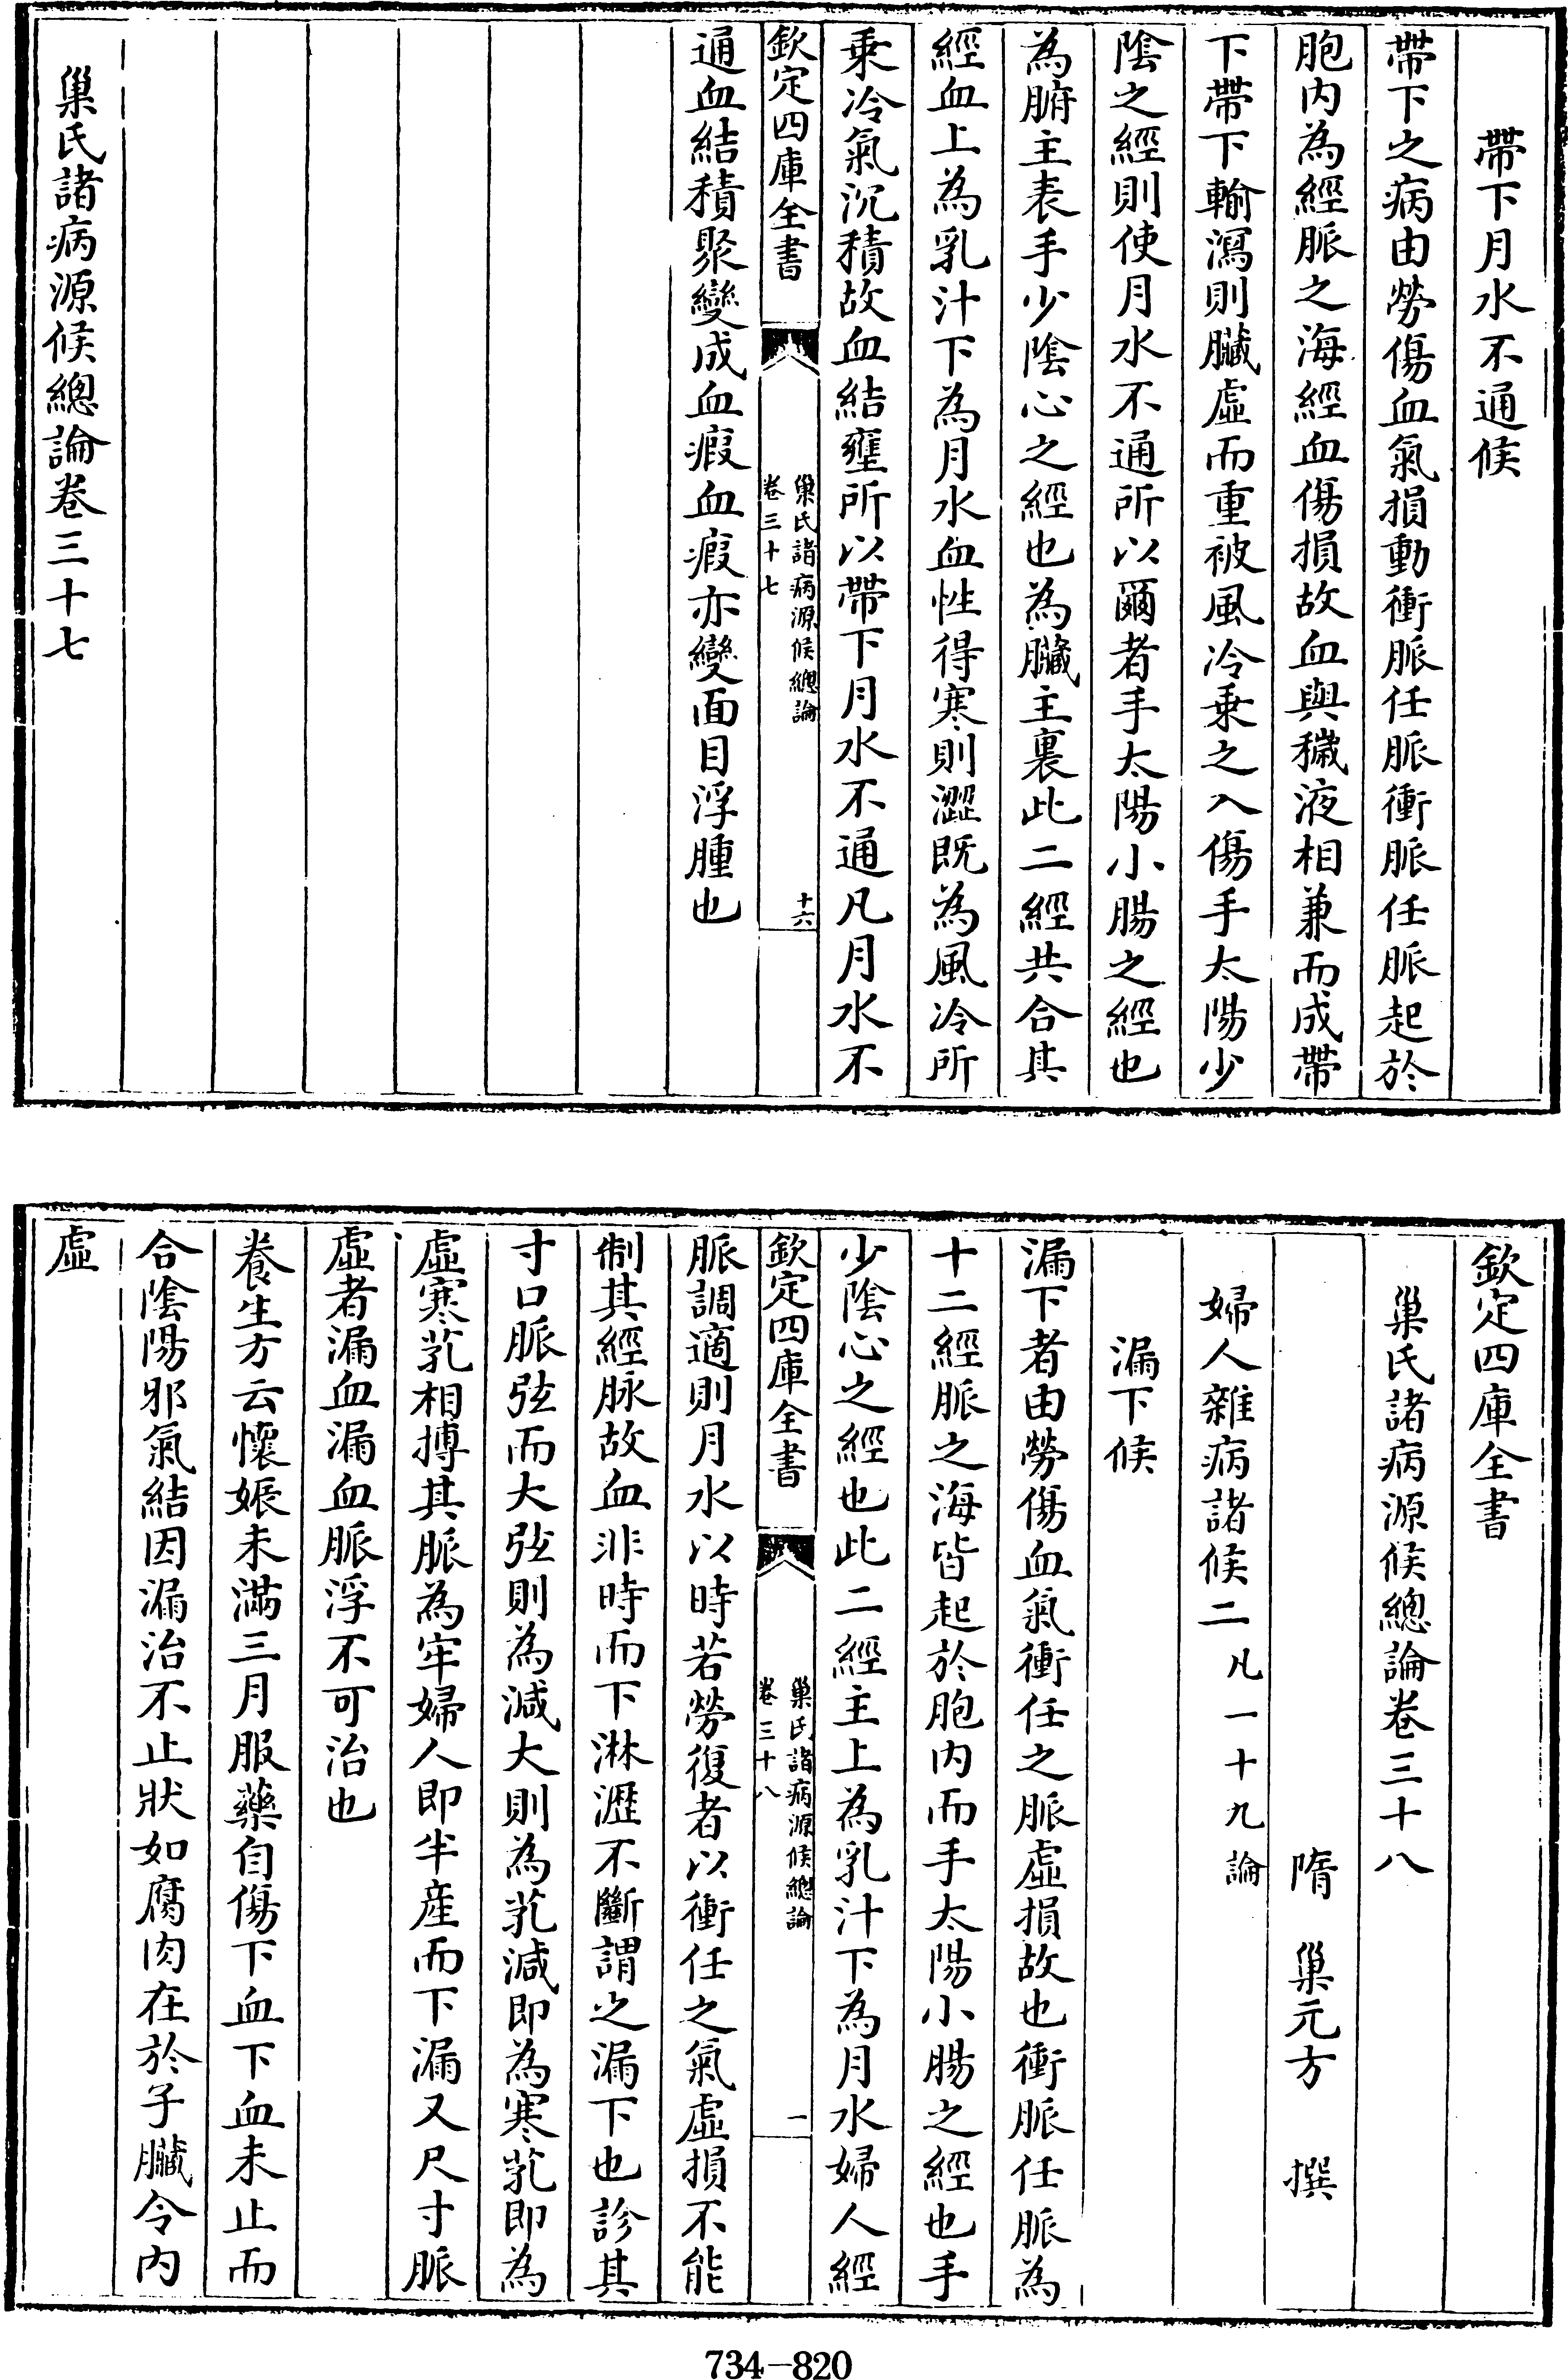 帶下月水不通候
帶下之病由勞傷血氣損動衝脈任脈衝脈任脈起於
胞内為經脈之海經血傷損故血與穢液相兼而成帶
下帶下輸瀉則臟虛而重被風冷乗之入傷手太陽少
陰之經則使月水不通所以爾者手太陽小腸之經也
為腑主表手少陰心之經也為臟主裏此二經共合其
經血上為乳汁下為月水血性得寒則澀既為風冷所
乗冷氣沉積故血結壅所以帶下月水不通凡月水不
欽定四庫全書
巢氏諸病源候總論
卷三十七
十六
通血結積聚變成血瘕血瘕亦變面目浮腫也
巢氏諸病源候總論卷三十七
欽定四庫全書
巢氏諸病源候總論卷三十八
隋 巢元方 撰
婦人雜病諸候二凡一十九論
漏下候
漏下者由勞傷血氣衝任之脈虛損故也衝脈任脈為
十二經脈之海皆起於胞内而手太陽小腸之經也手
少陰心之經也此二經主上為乳汁下為月水婦人經
欽定四庫全書
巢氏諸病源候總論
卷三十八
一
脈調適則月水以時若勞復者以衝任之氣虛損不能
制其經脉故血非時而下淋瀝不斷謂之漏下也診其
寸口脈弦而大弦則為減大則為芤減即為寒芤即為
虛寒芤相搏其脈為牢婦人即半産而下漏又尺寸脈
虛者漏血漏血脈浮不可治也
養生方云懷娠未滿三月服藥自傷下血下血未止而
合陰陽邪氣結因漏治不止狀如腐肉在於子臟令内
虛
734-820